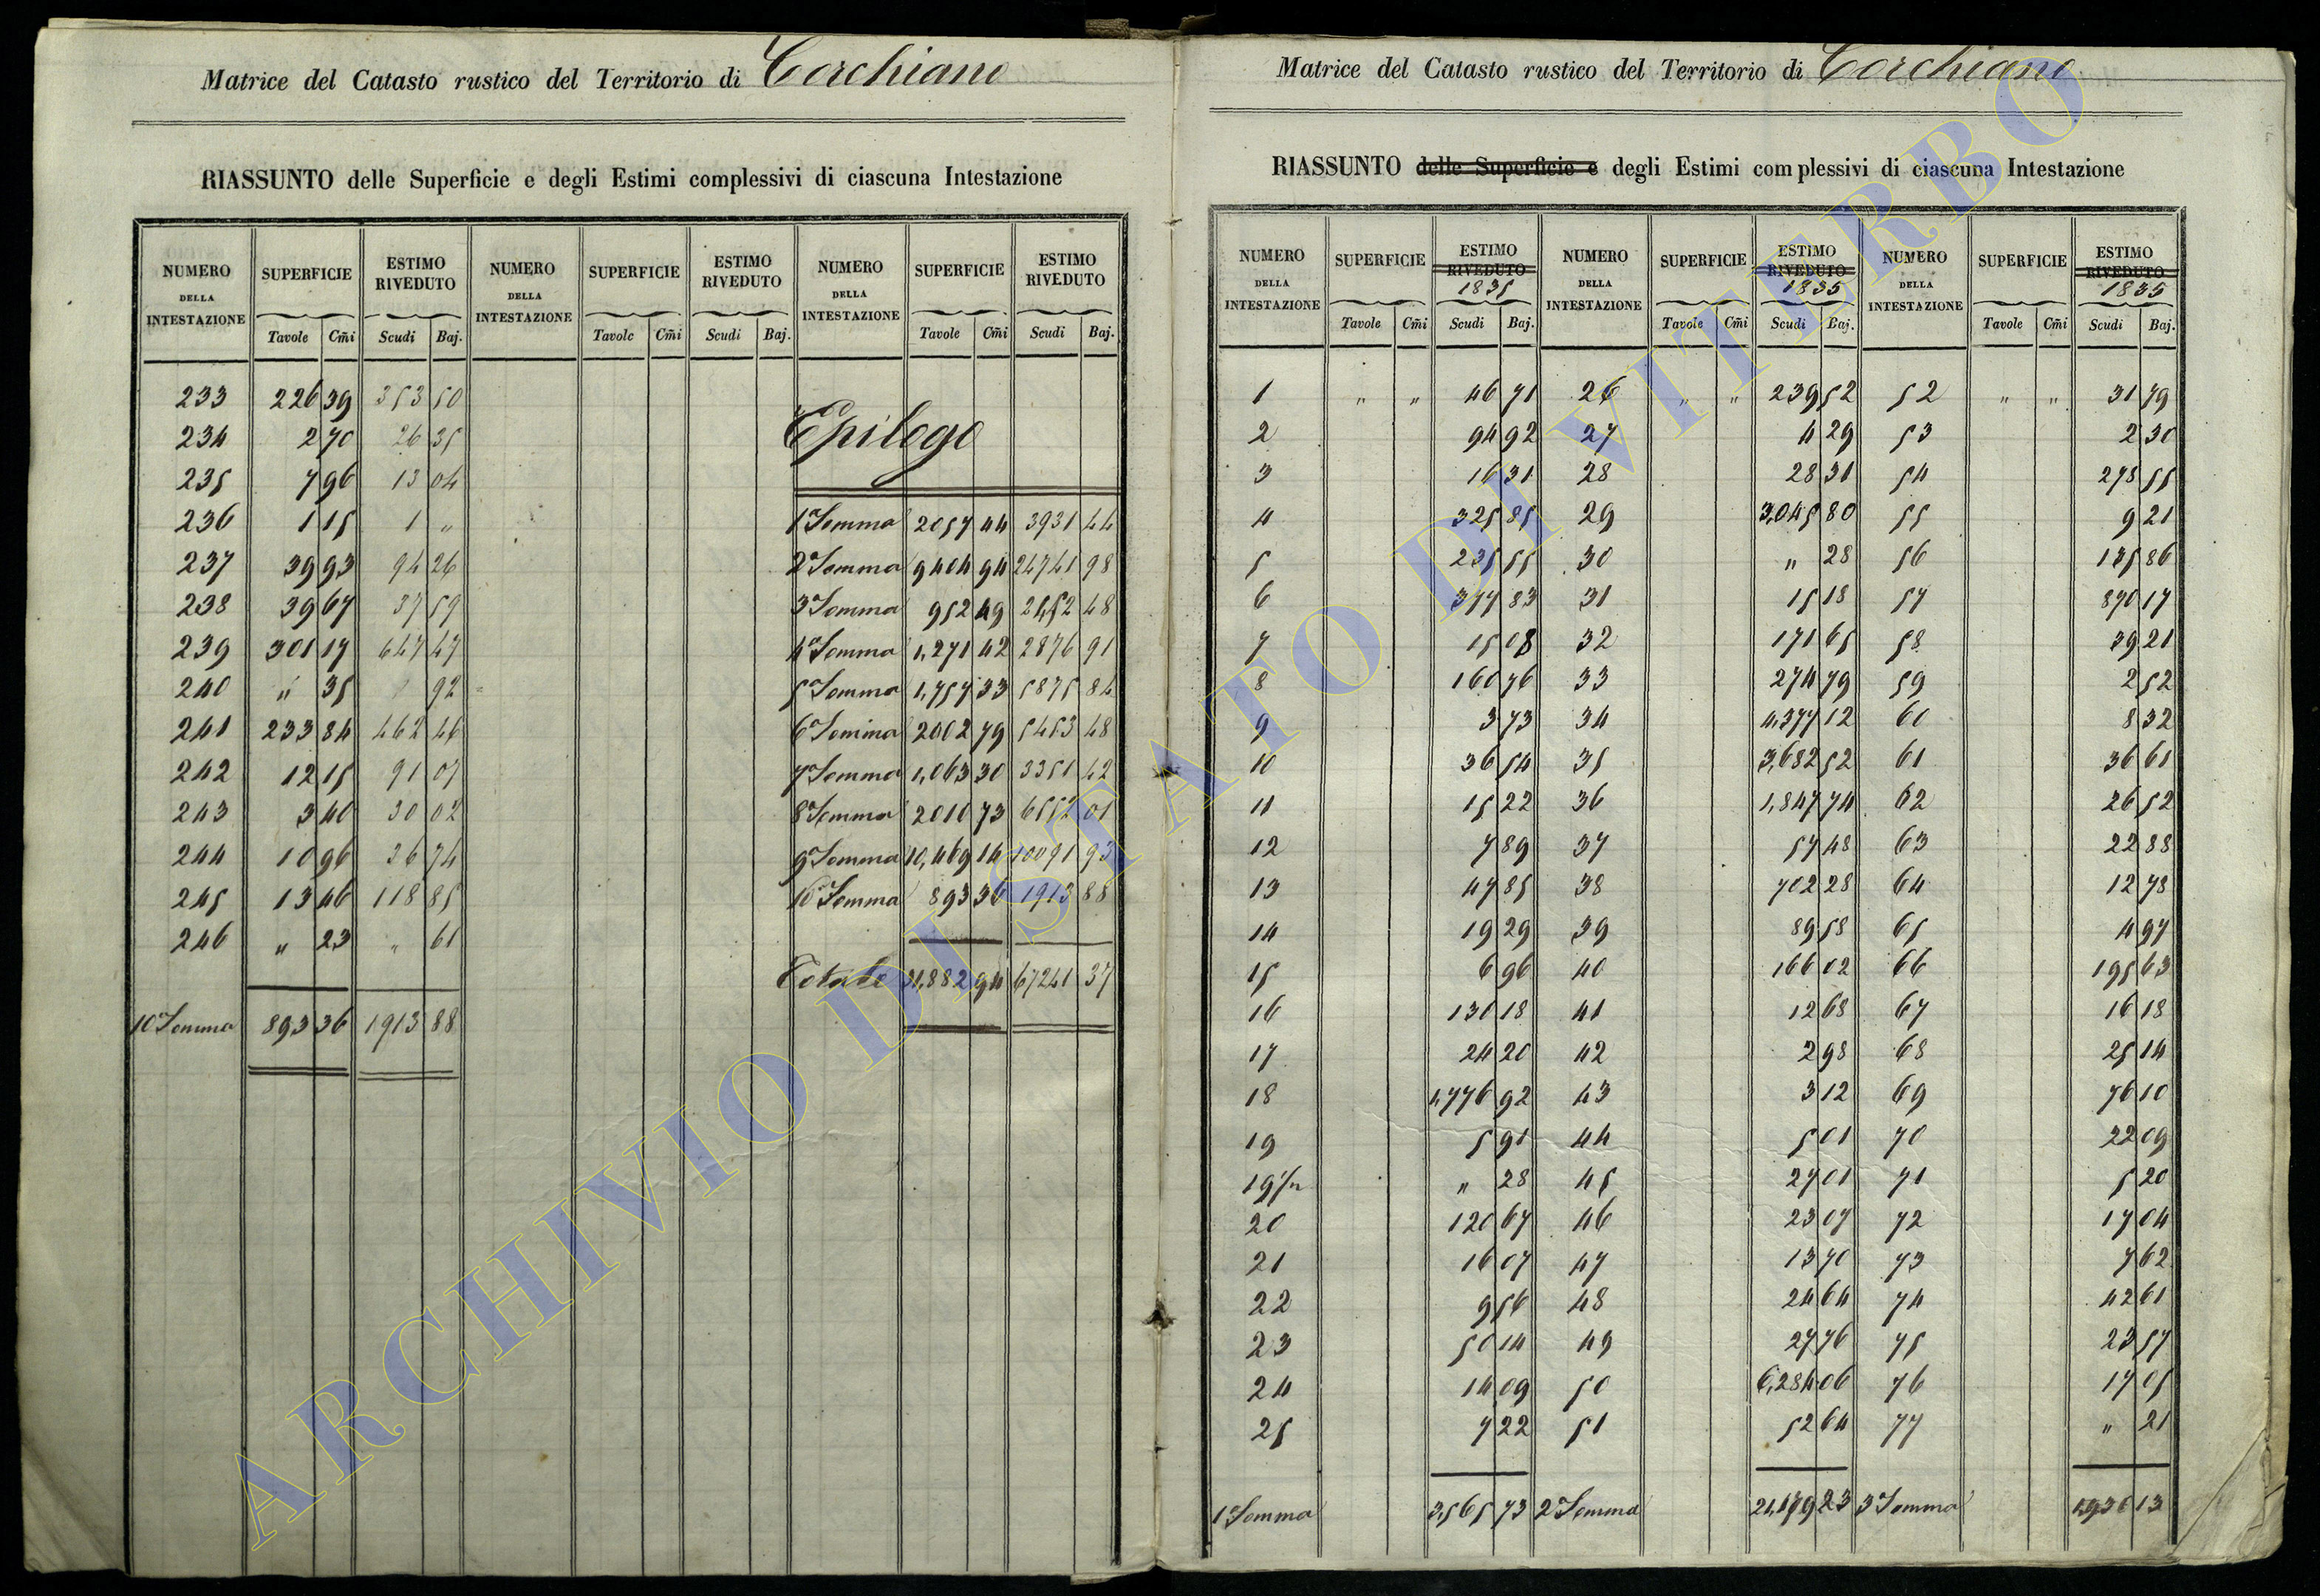 Matrice del Catasto rustico del Territorio di Corchiano
RIASSUNTO delle Superficie e degli Estimi complessivi di ciascuna Intestazione
NUMERO DELLA INTESTAZIONE SUPERFICIE ESTIMO RIVEDUTO NUMERO DELLA INTESTAZIONE SUPERFICIE ESTIMO RIVEDUTO NUMERO DELLA INTESTAZIONE SUPERFICIE ESTIMO RIVEDUTO
Tavole Cm̃i Scudi Baj. Tavole Cm̃i Scudi Baj. Tavole Cm̃i Scudi Baj.
233 226 39 353 50
234 2 70 26 35
235 7 96 13 04
236 1 15 1 "
237 39 93 94 26
238 39 67 37 59
239 301 17 647 47
240 " 35 92
241 233 84 462 46
242 12 15 91 07
243 3 40 30 02
244 10 96 36 74
245 13 46 118 85
246 " 23 " 61
10 Somma 893 36 1913 88
Epilogo
1 Somma 2057 44 3931 44
2 Somma 9404 94 24741 98
3 Somma 952 49 2452 48
4 Somma 1,271 42 2876 91
5 Somma 1,757 33 5875 84
6 Somma 2002 79 5453 48
7 Somma 1,063 30 3351 42
8 Somma 2010 73 6552 01
9 Somma 10,469 14 10091 93
10 Somma 893 36 1913 88
Totale 31,882 94 67241 37
Matrice del Catasto rustico del Territorio di Corchiano
RIASSUNTO delle Superficie e degli Estimi complessivi di ciascuna Intestazione
NUMERO DELLA INTESTAZIONE SUPERFICIE ESTIMO RIVEDUTO 1835 NUMERO DELLA INTESTAZIONE SUPERFICIE ESTIMO RIVEDUTO 1835 NUMERO DELLA INTESTAZIONE SUPERFICIE ESTIMO RIVEDUTO 1835
Tavole Cm̃i Scudi Baj. Tavole Cm̃i Scudi Baj. Tavole Cm̃i Scudi Baj.
1 " " 46 71 26 " " 239 52 52 " " 31 79
2 94 92 27 4 29 53 2 30
3 16 31 28 28 31 54 278 55
4 325 85 29 3,045 80 55 9 21
5 235 55 30 " 28 56 135 86
6 377 83 31 15 18 57 870 17
7 15 08 32 171 65 58 39 21
8 160 76 33 274 79 59 2 52
9 3 73 34 4,377 12 60 8 32
10 36 54 35 3,682 52 61 36 61
11 15 22 36 1,847 74 62 26 52
12 7 89 37 57 48 63 22 88
13 47 85 38 702 28 64 12 78
14 19 29 39 89 58 65 4 97
15 6 96 40 166 02 66 195 63
16 130 18 41 12 68 67 16 18
17 24 20 42 2 98 68 25 14
18 1,776 92 43 3 12 69 76 10
19 5 91 44 5 01 70 22 09
19½ " 28 45 27 01 71 5 20
20 120 67 46 23 07 72 17 04
21 16 07 47 13 70 73 7 62
22 9 56 48 24 64 74 42 61
23 50 14 49 27 76 75 23 57
24 14 09 50 6,284 06 76 17 05
25 7 22 51 52 64 77 " 21
1 Somma 3,565 73 2 Somma 21,179 23 3 Somma 1,936 13
ARCHIVIO DI STATO DI VITERBO